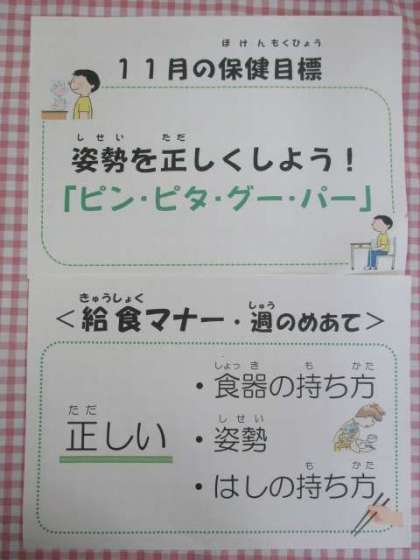 ほけんもくひょう
11月の保健目標
しせい ただ
姿勢を正しくしよう！
「ピン・ピタ・グー・パー」
きゅうしょく しゅう
＜給食マナー・週のめあて＞
しょっき も かた
・食器の持ち方
ただ しせい
正しい ・姿勢
も かた
・はしの持ち方